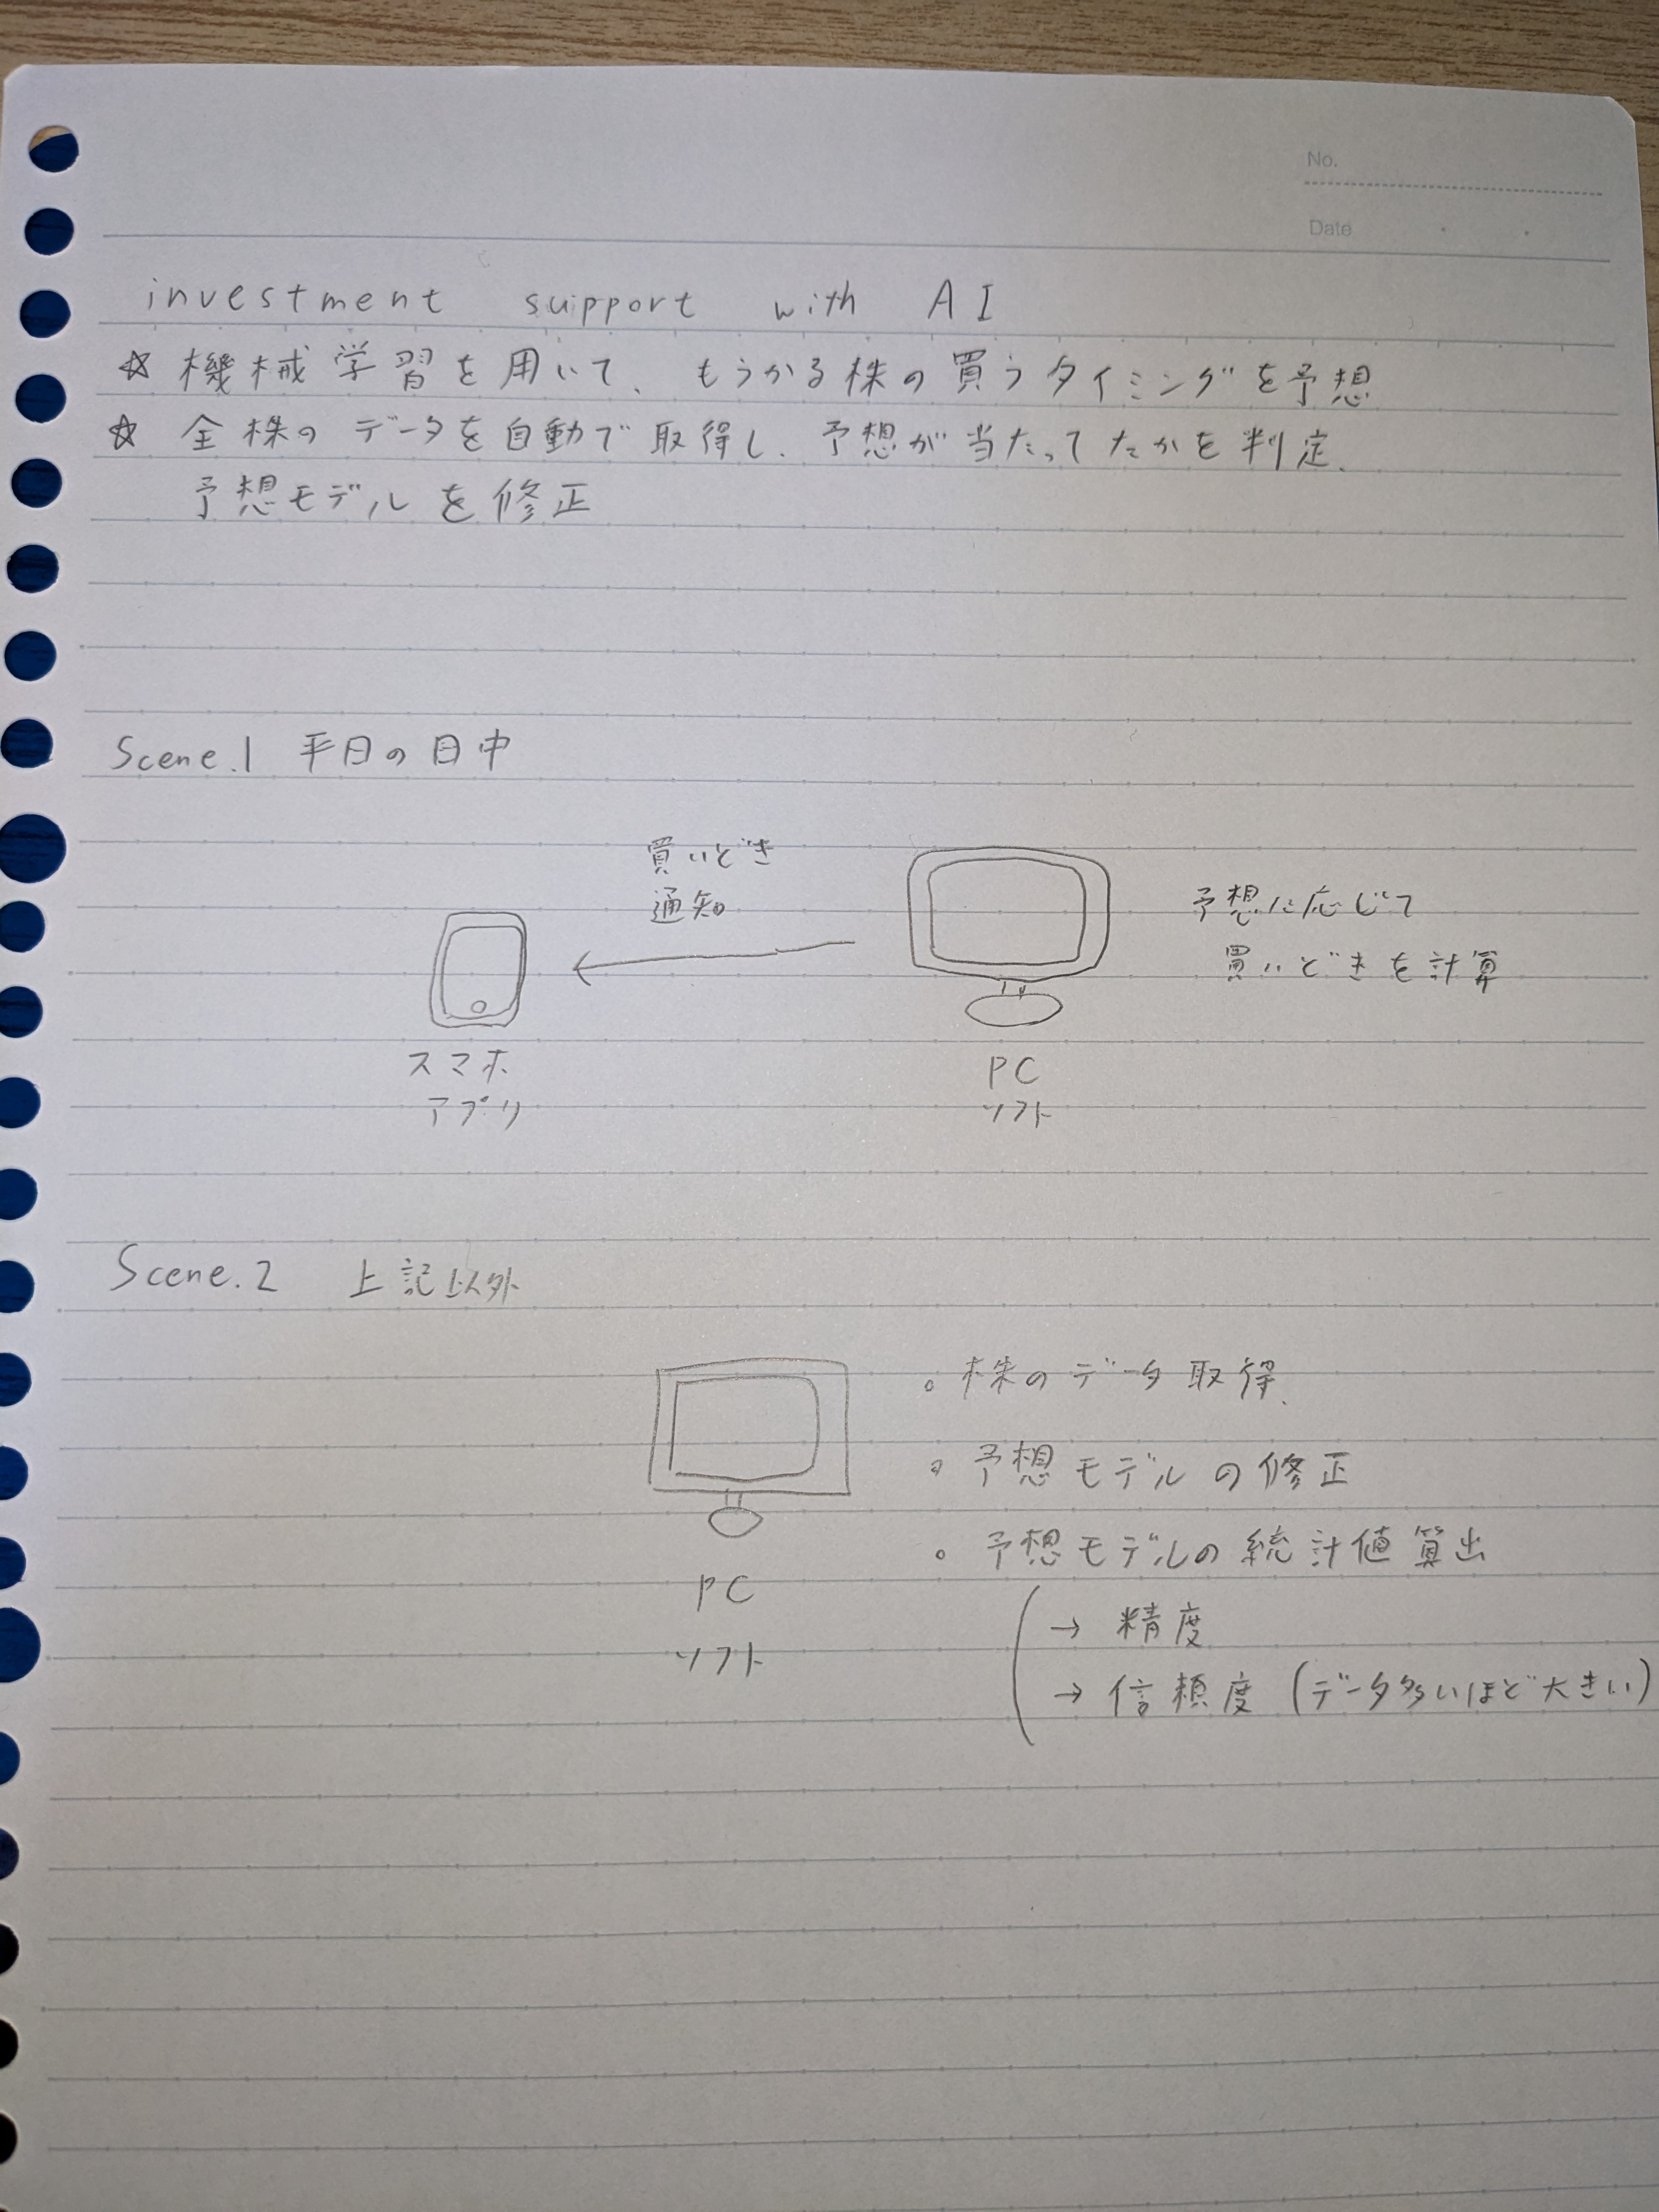 No.
Date
investment support with AI
☆ 機械学習を用いて、もうかる株の買うタイミングを予想
☆ 全株のデータを自動で取得し、予想が当たってたかを判定、
予想モデルを修正
Scene.1 平日の日中
買いどき
通知
予想に応じて
買いどきを計算
スマホ
アプリ
PC
ソフト
Scene.2 上記以外
。株のデータ取得、
。予想モデルの修正
。予想モデルの統計値算出
→ 精度
→ 信頼度 (データ多いほど大きい)
PC
ソフト